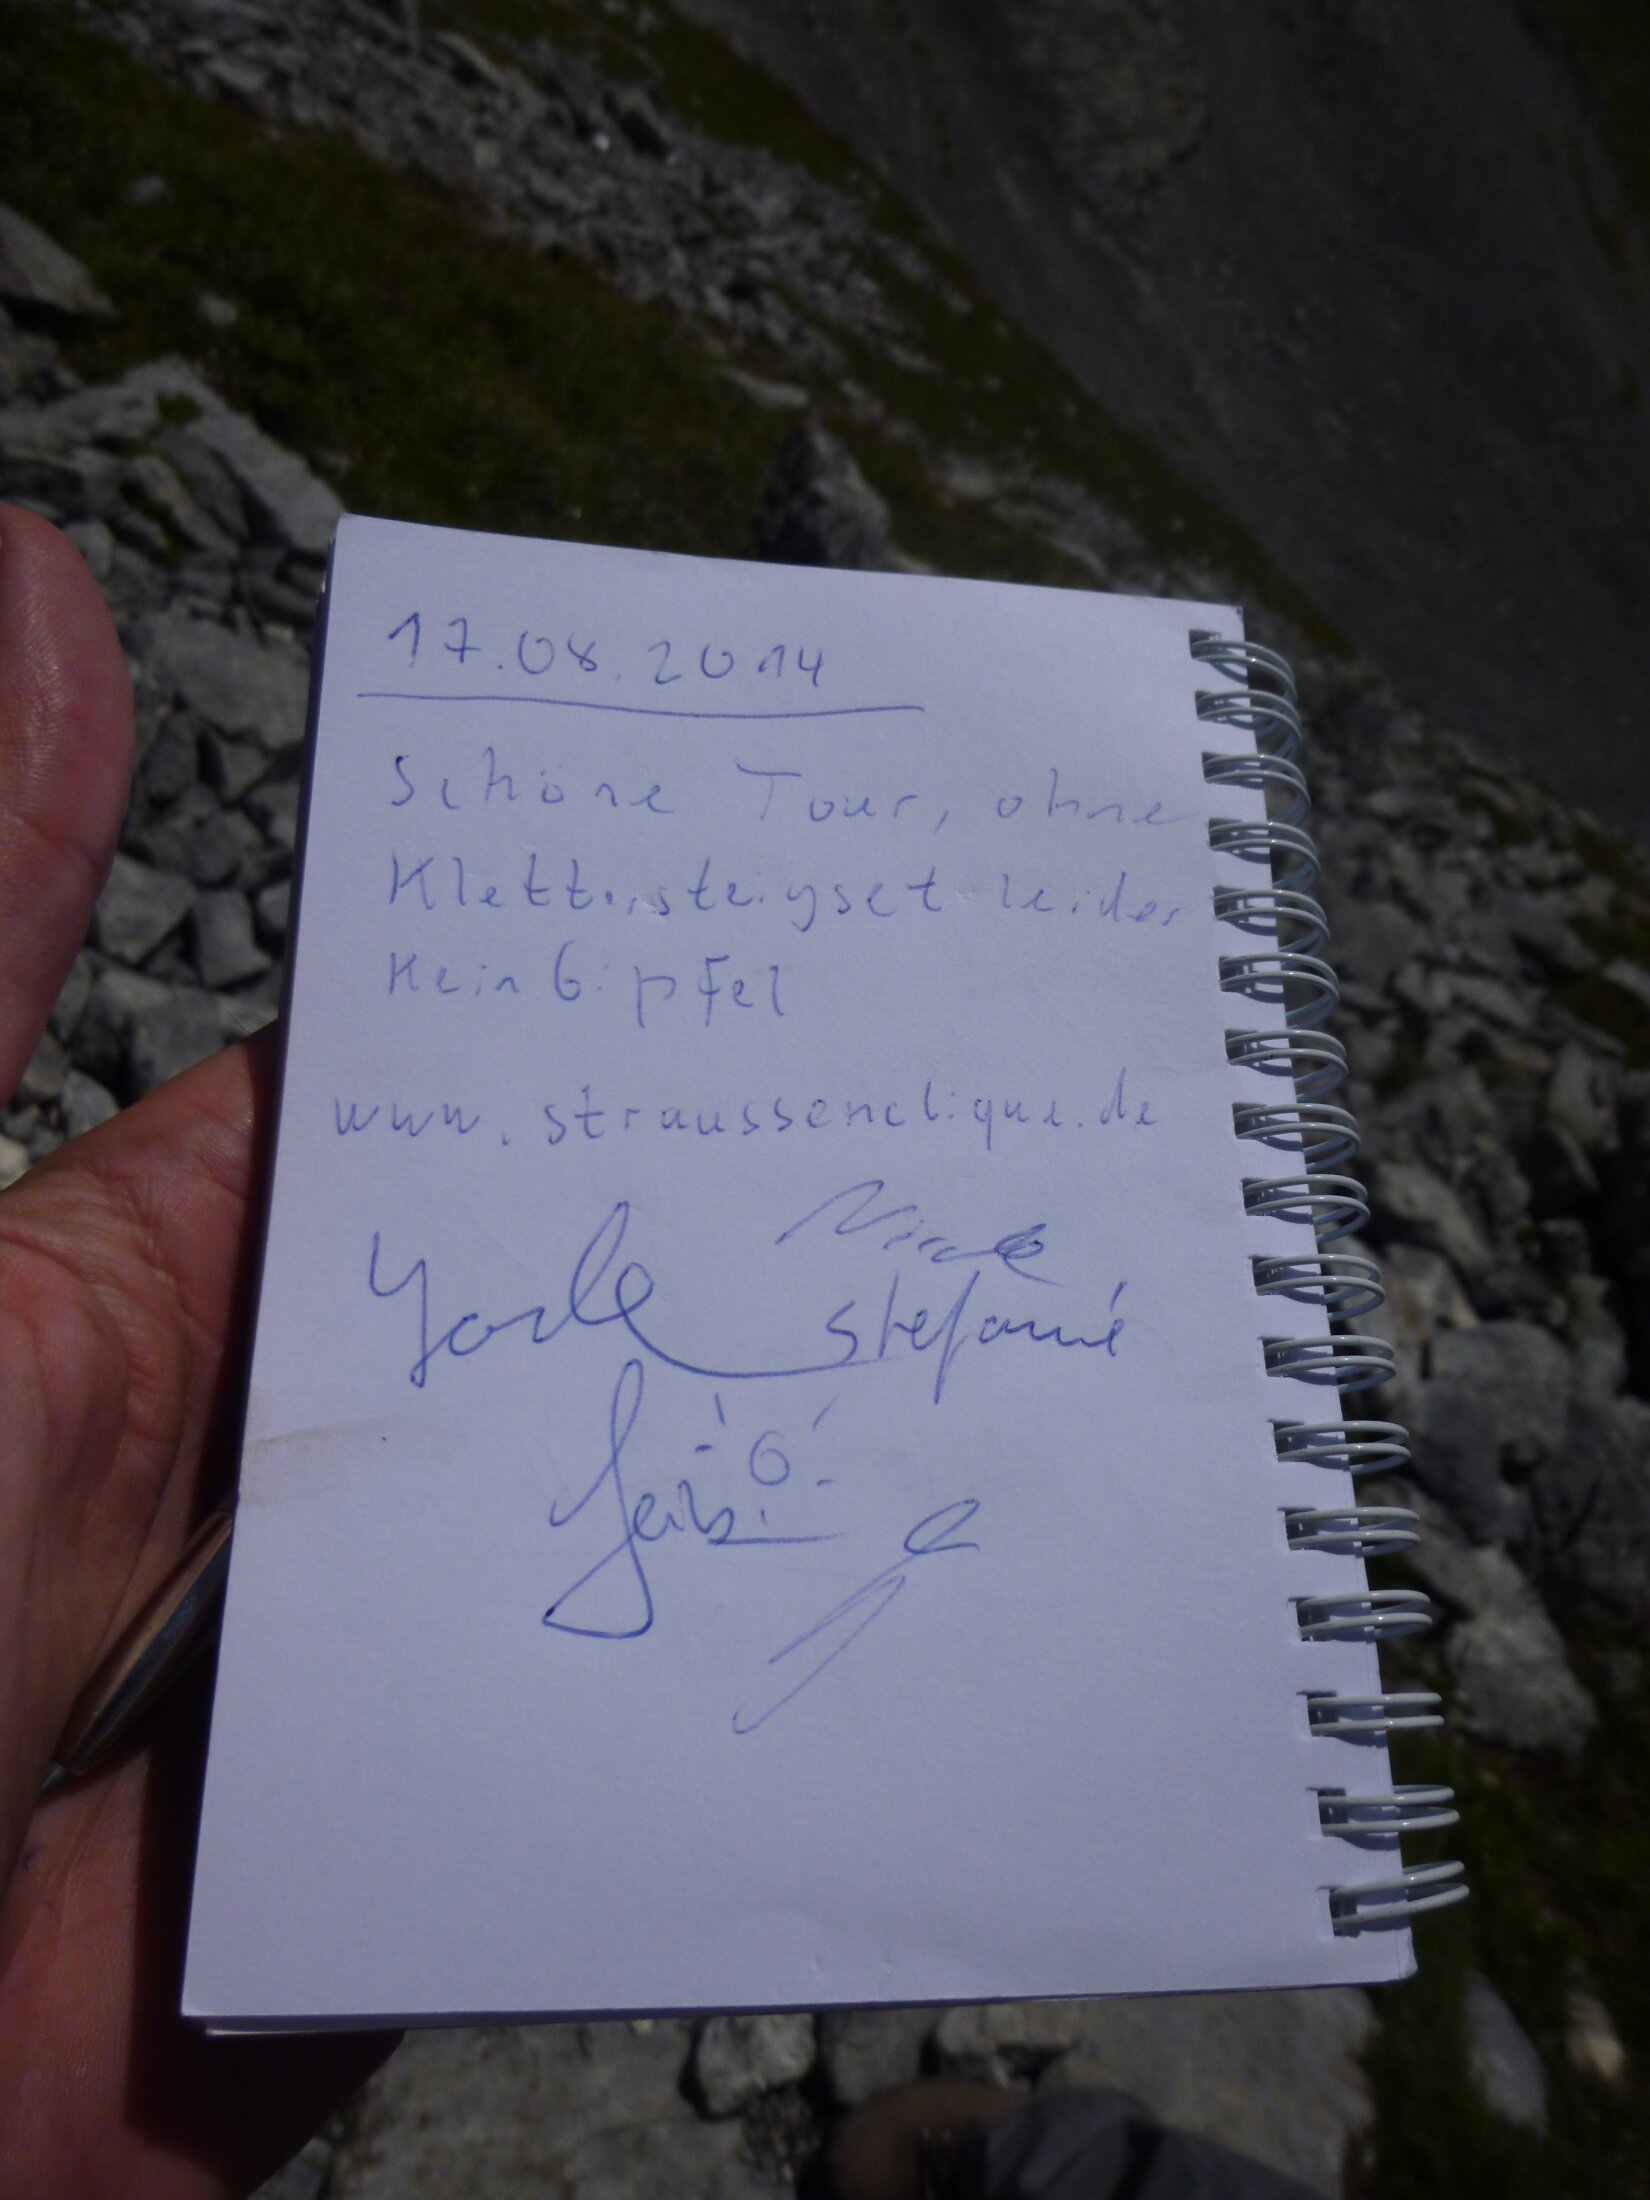 17.08.2014
Schöne Tour, ohne
Klettersteigset leider
kein Gipfel
www.straussenclique.de
Nicole
Stefanie